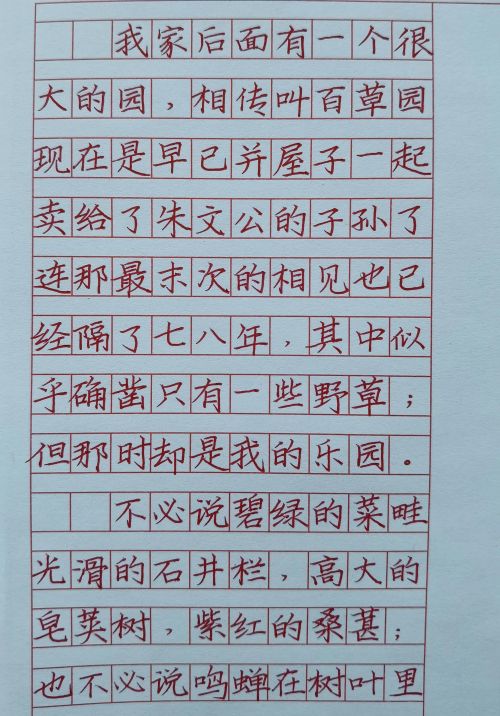 我家后面有一个很
大的园，相传叫百草园
现在是早已并屋子一起
卖给了朱文公的子孙了
连那最末次的相见也已
经隔了七八年，其中似
乎确凿只有一些野草；
但那时却是我的乐园。
不必说碧绿的菜畦
光滑的石井栏，高大的
皂荚树，紫红的桑葚；
也不必说鸣蝉在树叶里